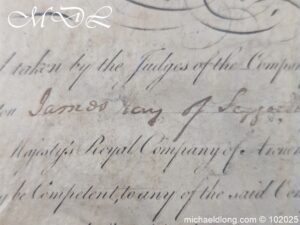 MDL
taken by the Judges of the Compan
James Ray of
Majesty's Royal Company of Archer
y be Competent, to any of the said Co
michaeldlong.com © 102025